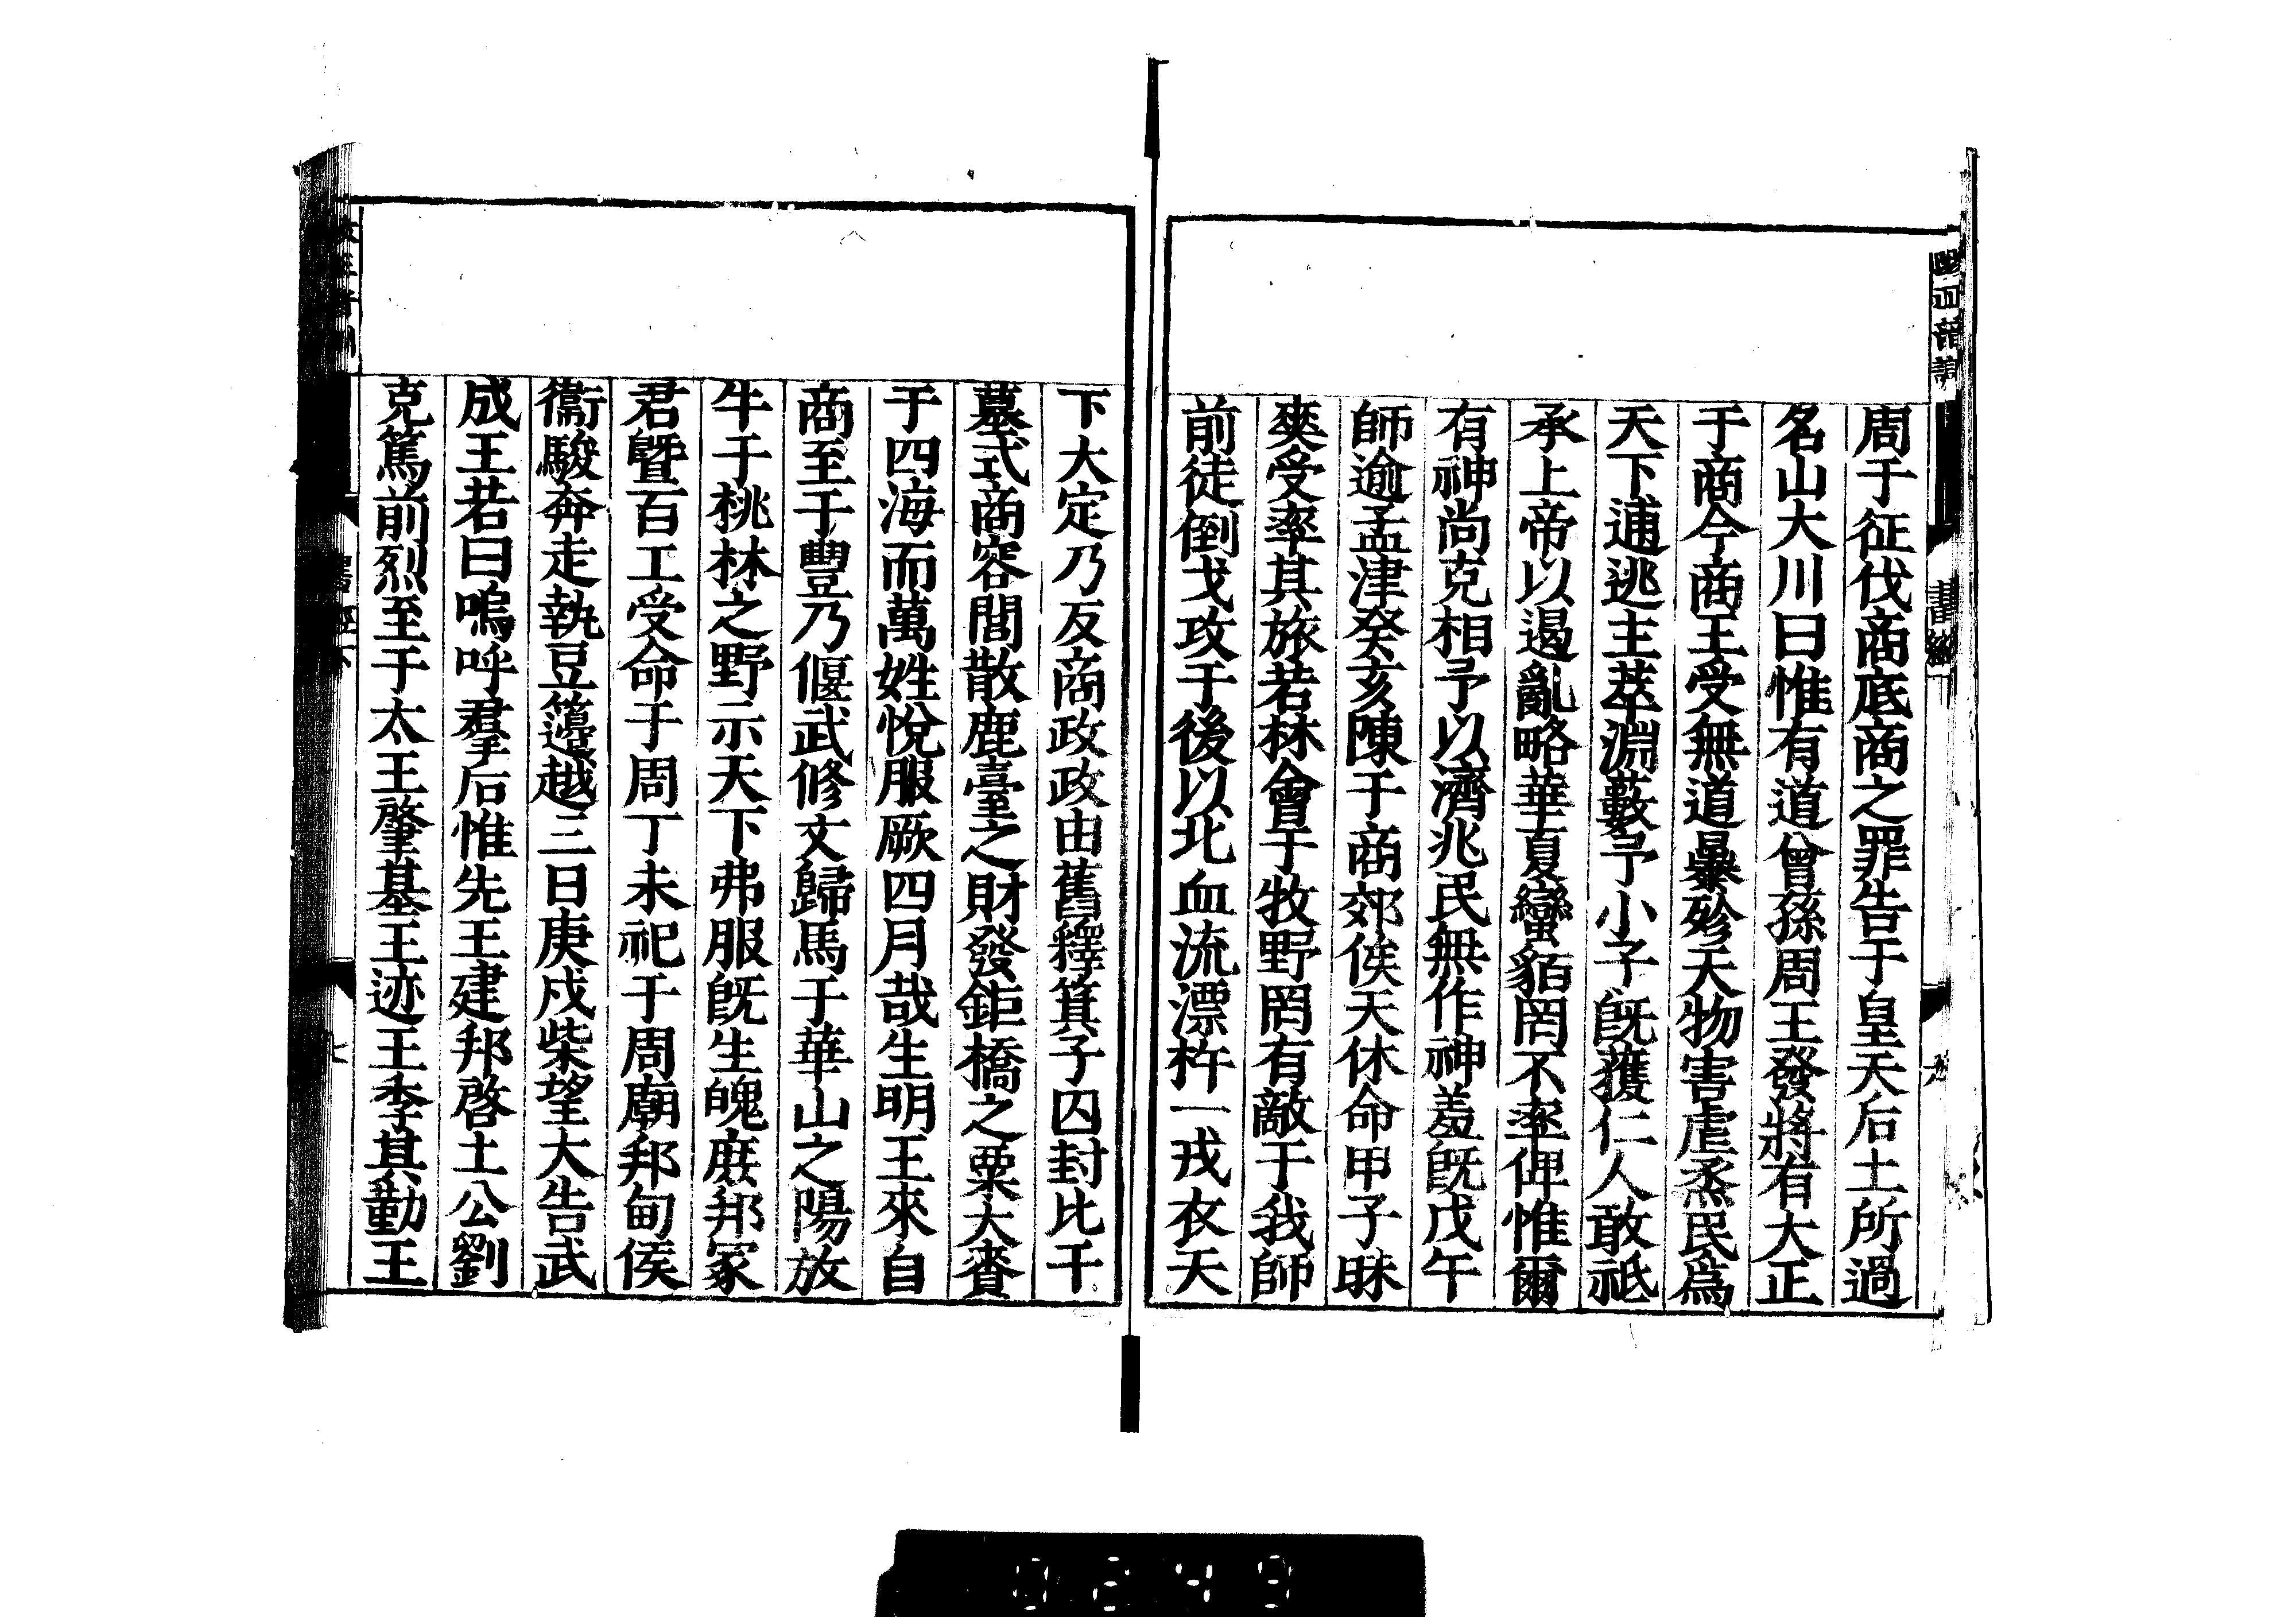 周于征伐商底商之罪告于皇天后土所過
名山大川曰惟有道曾孫周王發將有大正
于商今商王受無道暴殄天物害虐烝民爲
天下逋逃主萃淵藪予小子旣獲仁人敢祗
承上帝以遏亂略華夏蠻貊罔不率俾惟爾
有神尚克相予以濟兆民無作神羞旣戊午
師逾孟津癸亥陳于商郊俟天休命甲子昧
爽受率其旅若林會于牧野罔有敵于我師
前徒倒戈攻于後以北血流漂杵一戎衣天
下大定乃反商政政由舊釋箕子囚封比干
墓式商容閭散鹿臺之財發鉅橋之粟大賚
于四海而萬姓悅服厥四月哉生明王來自
商至于豐乃偃武修文歸馬于華山之陽放
牛于桃林之野示天下弗服旣生魄庶邦冢
君曁百工受命于周丁未祀于周廟邦甸侯
衞駿奔走執豆籩越三日庚戌柴望大告武
成王若曰嗚呼羣后惟先王建邦啓土公劉
克篤前烈至于太王肇基王迹王季其勤王
書經下
七
0249